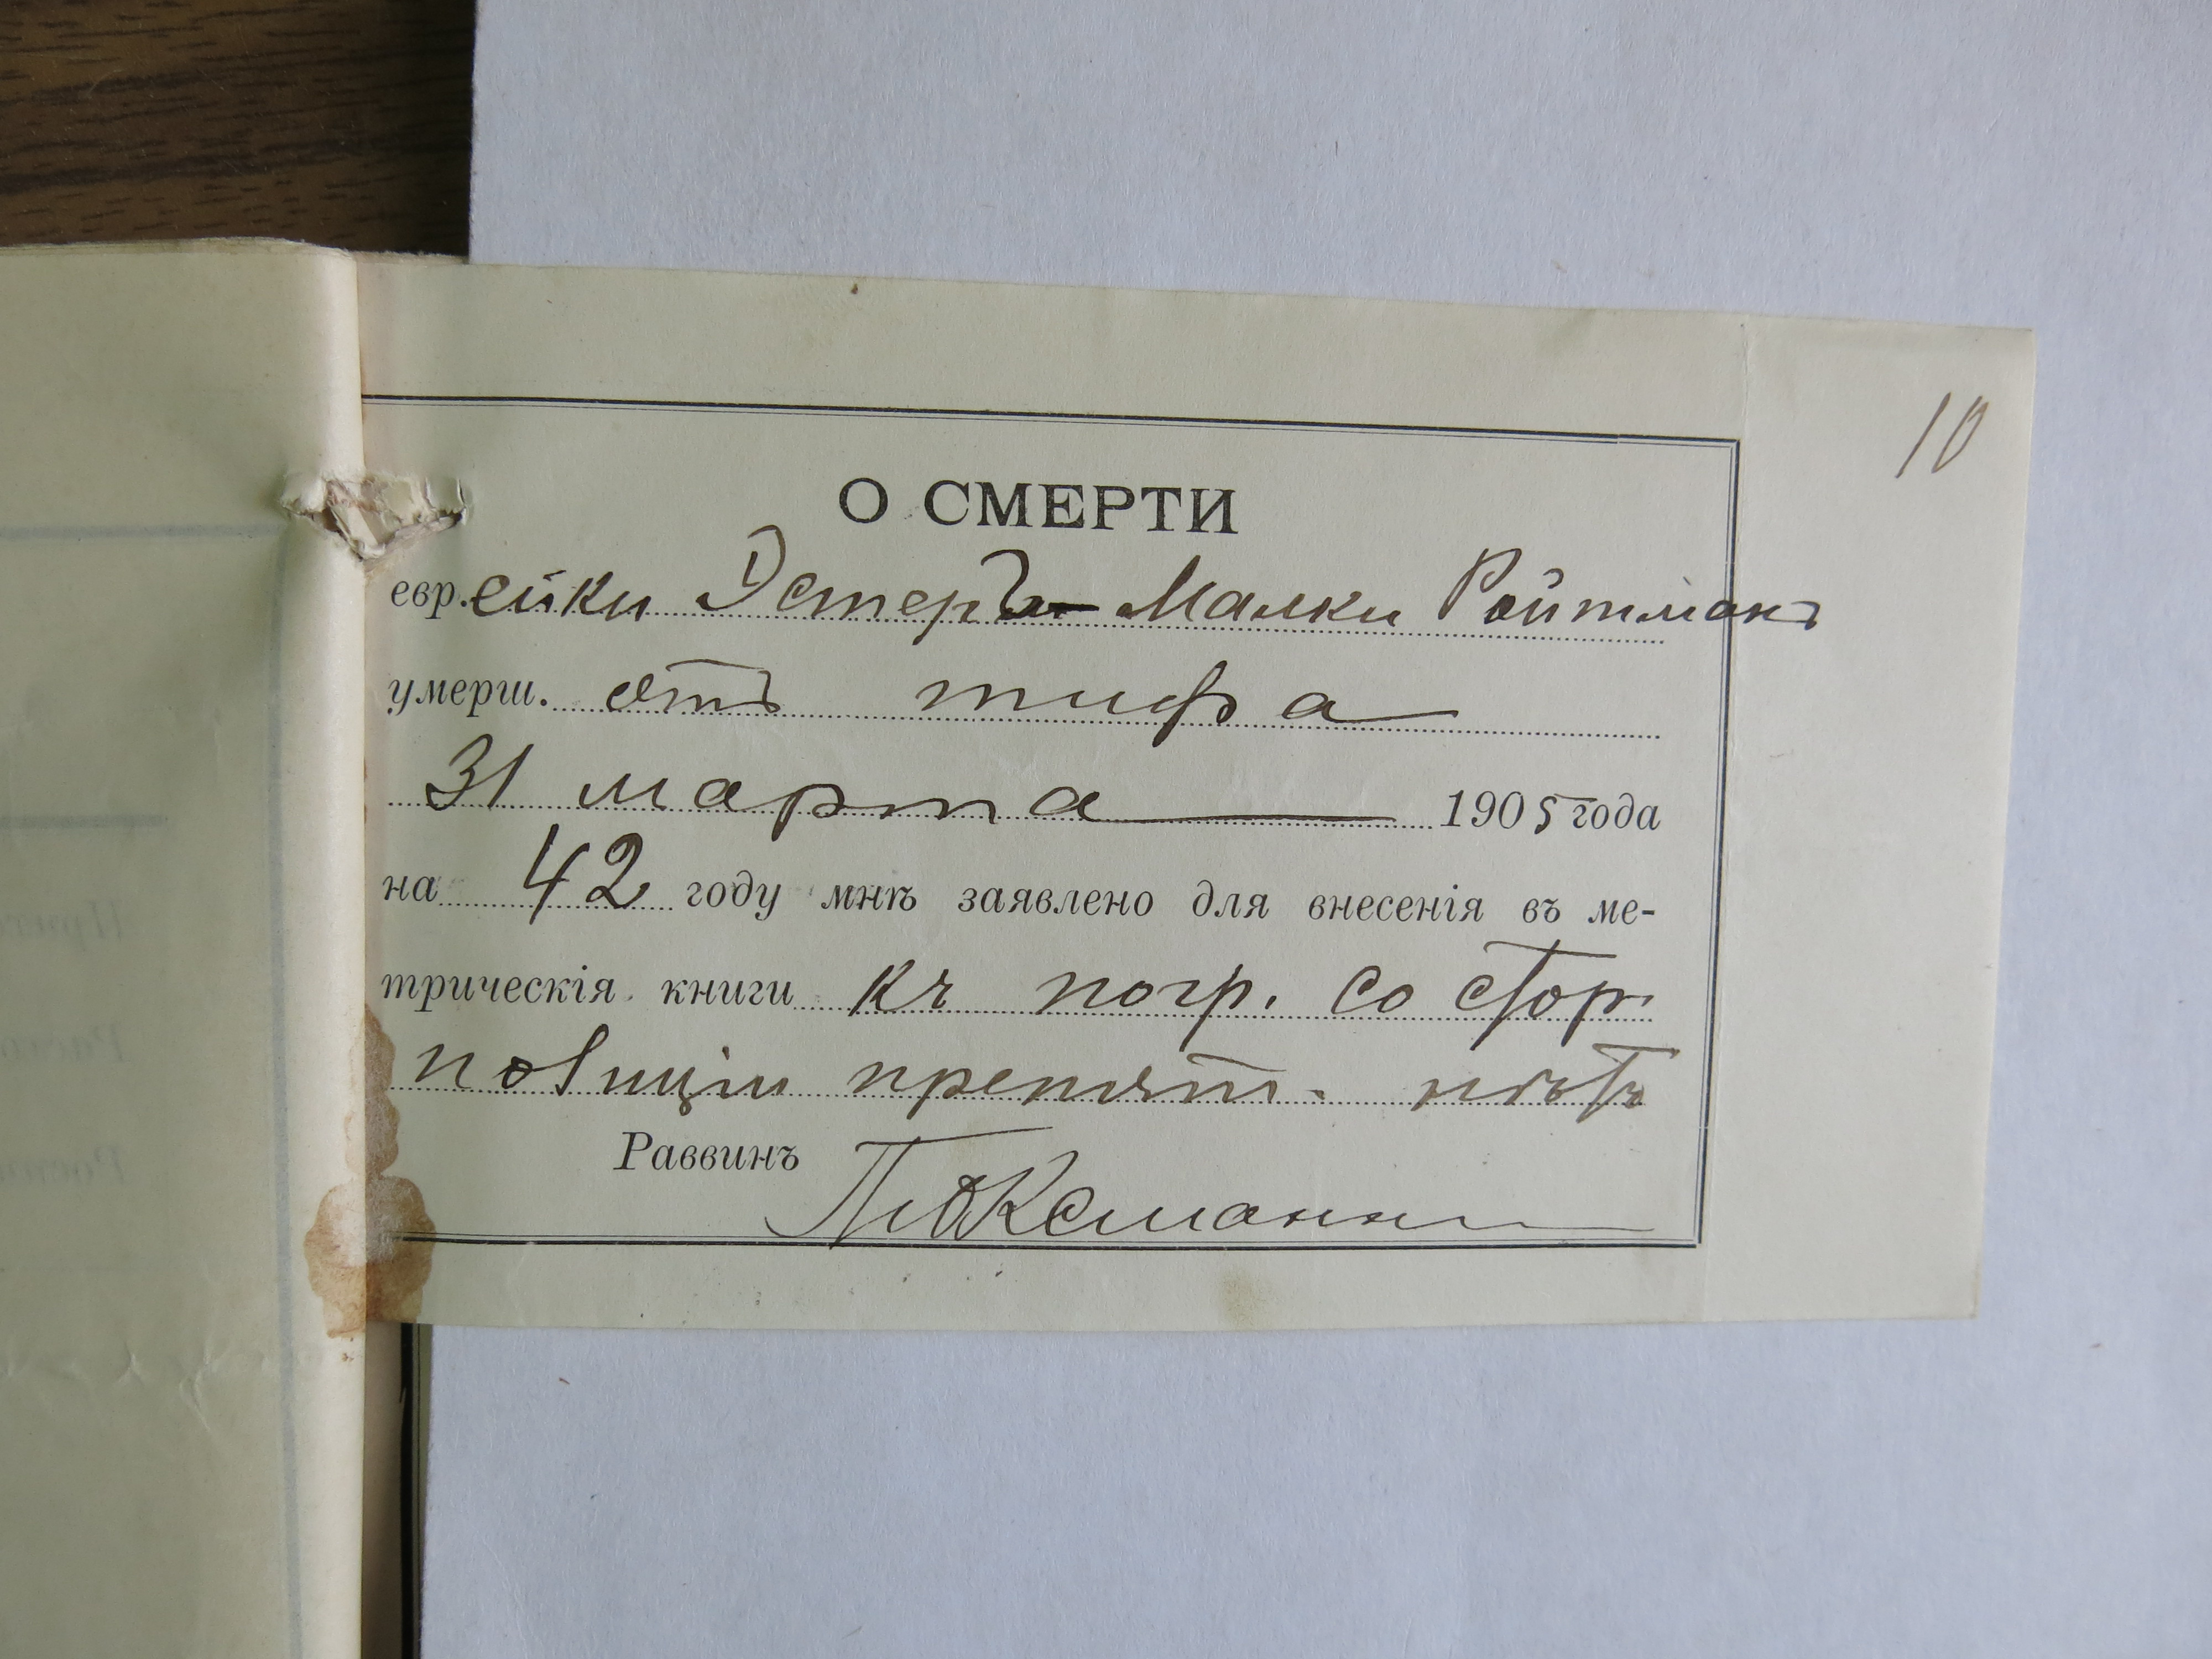 10
О СМЕРТИ
евр.ейки Эстеръ-Малки Ройтманъ
умерш. отъ тифа
31 марта 1905 года
на 42 году мнѣ заявлено для внесенія въ ме-
трическія книги къ погр. со стор.
полиціи препят. нѣтъ
Раввинъ